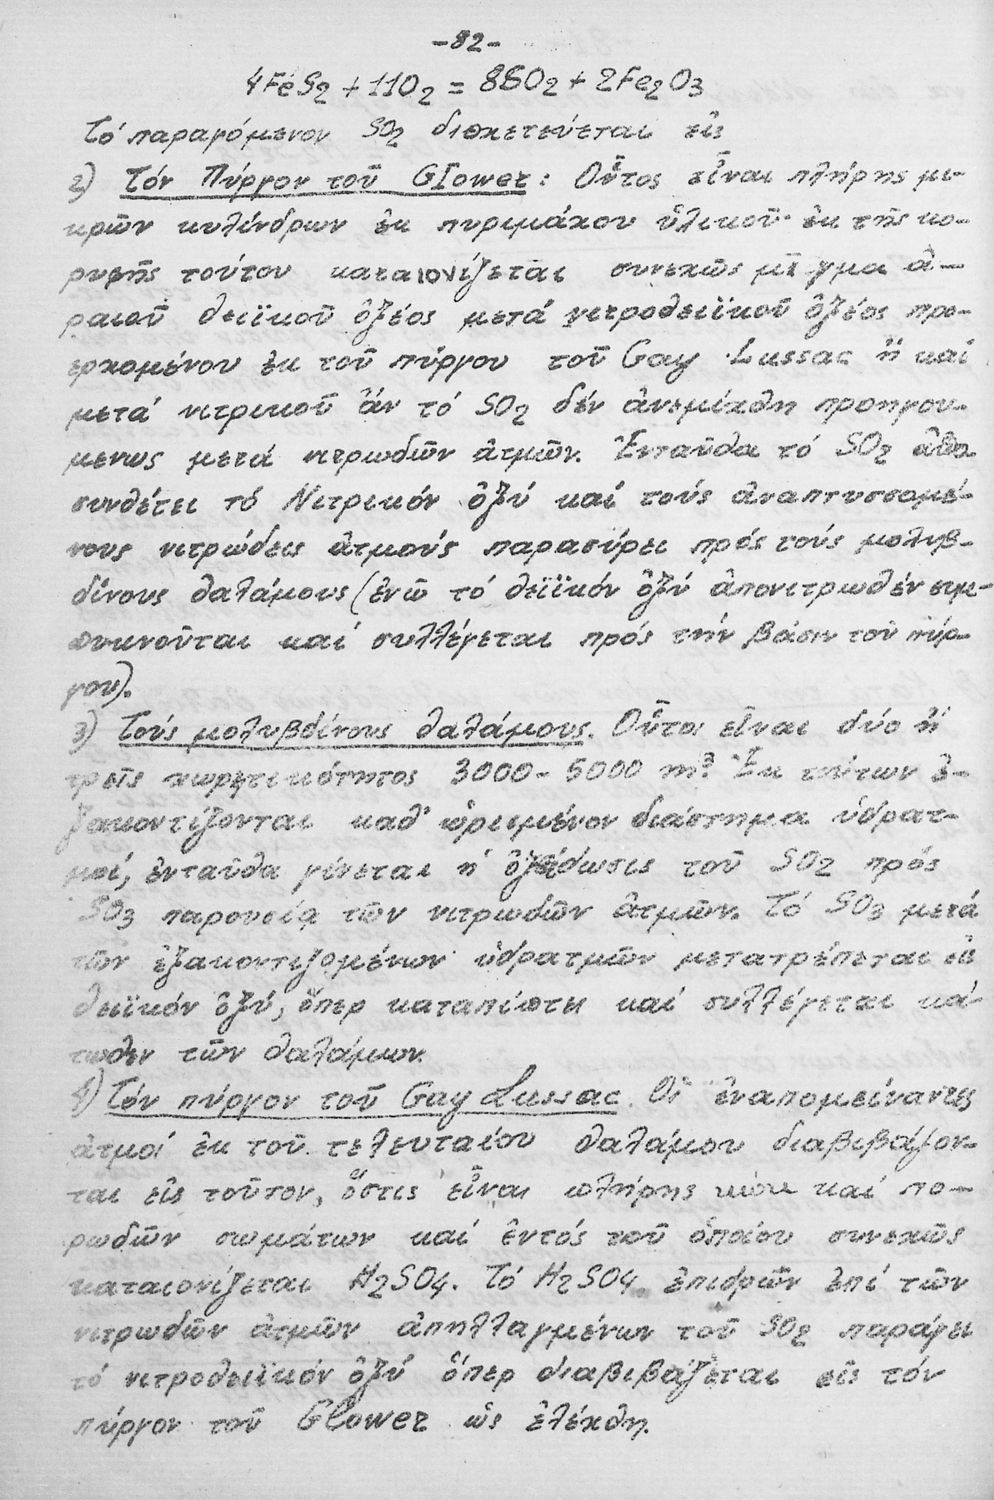 -82-
4FeS2 + 11O2 = 8SO2 + 2Fe2O3
Τό παραγόμενον SO2 διοχετεύεται εἰς
2) Τόν Πύργον τοῦ Glower: Οὗτος εἶναι πλήρης μι-
κρῶν κυλίνδρων ἐκ πυριμάχου ὑλικοῦ· ἐκ τῆς κο-
ρυφῆς τούτου καταιονίζεται συνεχῶς μῖγμα ἀ-
ραιοῦ θειϊκοῦ ὀξέος μετά νιτροθειϊκοῦ ὀξέος προ-
ερχομένου ἐκ τοῦ πύργου τοῦ Gay-Lussac ἤ καί
μετά νιτρικοῦ ἄν τό SO2 δέν ἀνεμίχθη προηγου-
μενως μετά νιτρωδῶν ἀτμῶν. Ἐνταῦθα τό SO2 ἀπο
συνθέτει τό Νιτρικόν ὀξύ καί τούς ἀναπτυσσομέ-
νους νιτρώδεις ἀτμούς παρασύρει πρός τούς μολυβ-
δίνους θαλάμους (ἐνῶ τό θειϊκόν ὀξύ ἀπονιτρωθέν συμ-
πυκνοῦται καί συλλέγεται πρός τήν βάσιν τοῦ πύρ-
γου).
3) Τούς μολυβδίνους θαλάμους. Οὗτοι εἶναι δύο ἤ
τρεῖς χωρητικότητος 3000-5000 m3. Ἐκ τούτων ἐ-
ξακοντίζονται καθ' ὡρισμένον διάστημα ὑδρατ-
μοί, ἐνταῦθα γίνεται ἡ ὀξείδωσις τοῦ SO2 πρός
SO3 παρουσίᾳ τῶν νιτρωδῶν ἀτμῶν. Τό SO3 μετά
τῶν ἐξακοντιζομένων ὑδρατμῶν μετατρέπεται εἰς
θειϊκόν ὀξύ, ὅπερ καταπίπτει καί συλλέγεται κά-
τωθεν τῶν θαλάμων.
4) Τόν πύργον τοῦ Gay Lussac. Οἱ ἐναπομείναντες
ἀτμοί ἐκ τοῦ τελευταίου θαλάμου διαβιβάζον-
ται εἰς τοῦτον, ὅστις εἶναι πλήρης κώκ καί πο-
ρωδῶν σωμάτων καί ἐντός τοῦ ὁποίου συνεχῶς
καταιονίζεται H2SO4. Τό H2SO4 ἐπιδρῶν ἐπί τῶν
νιτρωδῶν ἀτμῶν ἀπηλλαγμένων τοῦ SO2 παράγει
τό νιτροθειϊκόν ὀξύ ὅπερ διαβιβάζεται εἰς τόν
πύργον τοῦ Glower ὡς ἐλέχθη.